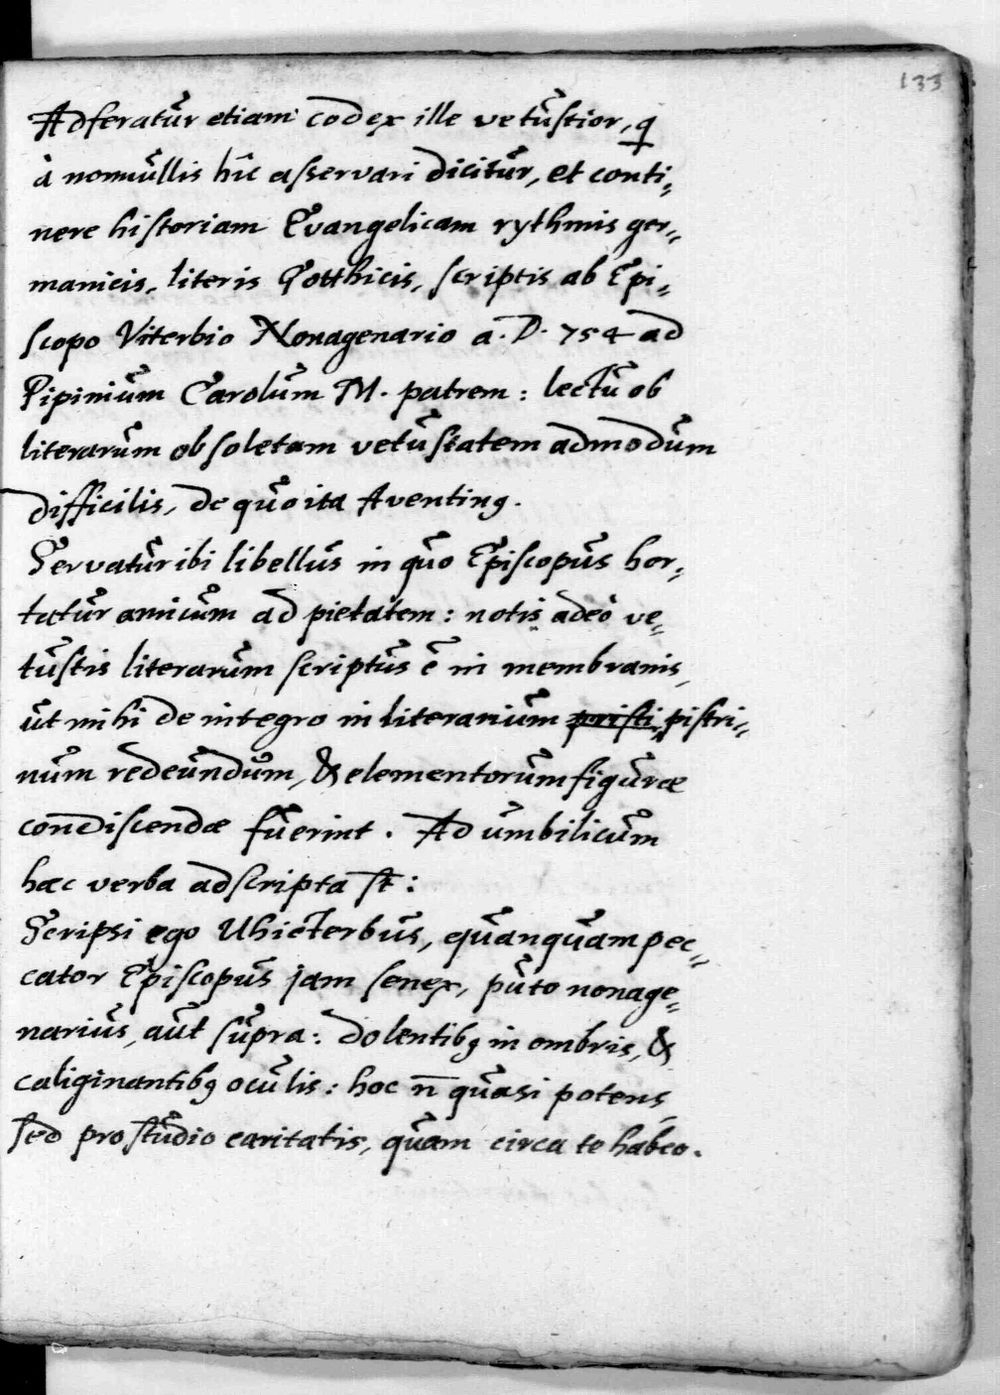 133
Adferatur etiam codex ille vetustior, q
à nonnullis hîc asservari dicitur, et conti-
nere historiam Evangelicam rythmis ger-
manicis, literis Gotthicis, scriptis ab Epi-
scopo Viterbio Nonagenario a. D. 754 ad
Pipinium Carolum M. patrem: lectu ob
literarum obsoletam vetustatem admodum
difficilis, de quo ita Aventinꝰ.
Servatur ibi libellus in quo Episcopus hor-
tatur amicum ad pietatem: notis adeò ve-
tustis literarum scriptus ē in membranis,
ut mihi de integro in literarium pristi- pistri-
num redeundum, & elementorum figuræ
condiscendæ fuerint. Ad umbilicum
hæc verba adscripta st̄:
Scripsi ego Uhicterbus, quanquam pec-
cator Episcopus jam senex, puto nonage-
narius, aut supra: dolentibꝰ in ombris, &
caliginantibꝰ oculis: hoc n̄ quasi potens,
sed pro studio caritatis, quam circa te habeo.